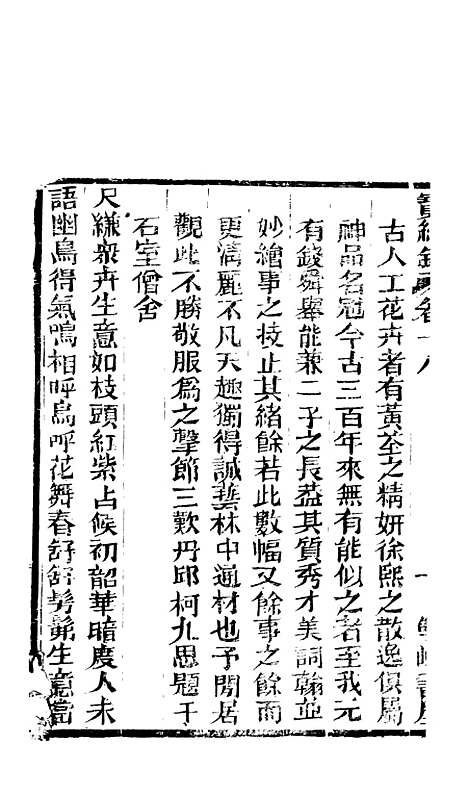 寶繪錄卷十八
古人工花卉者有黃荃之精妍徐熙之散逸俱屬
神品名冠今古三百年來無有能似之者至我元
有錢舜舉能兼二子之長葢其質秀才美詞翰並
妙繪事之技止其緒餘若此數幅又餘事之餘而
更淸麗不凡天趣獨得誠藝林中通材也予閒居
觀此不勝敬服爲之擊節三歎丹邱柯九思題于
石室僧舍
尺縑衆卉生意如枝頭紅紫占候初韶華暗度人未
語幽鳥得氣鳴相呼鳥呼花舞春舒舒髣髴生意當